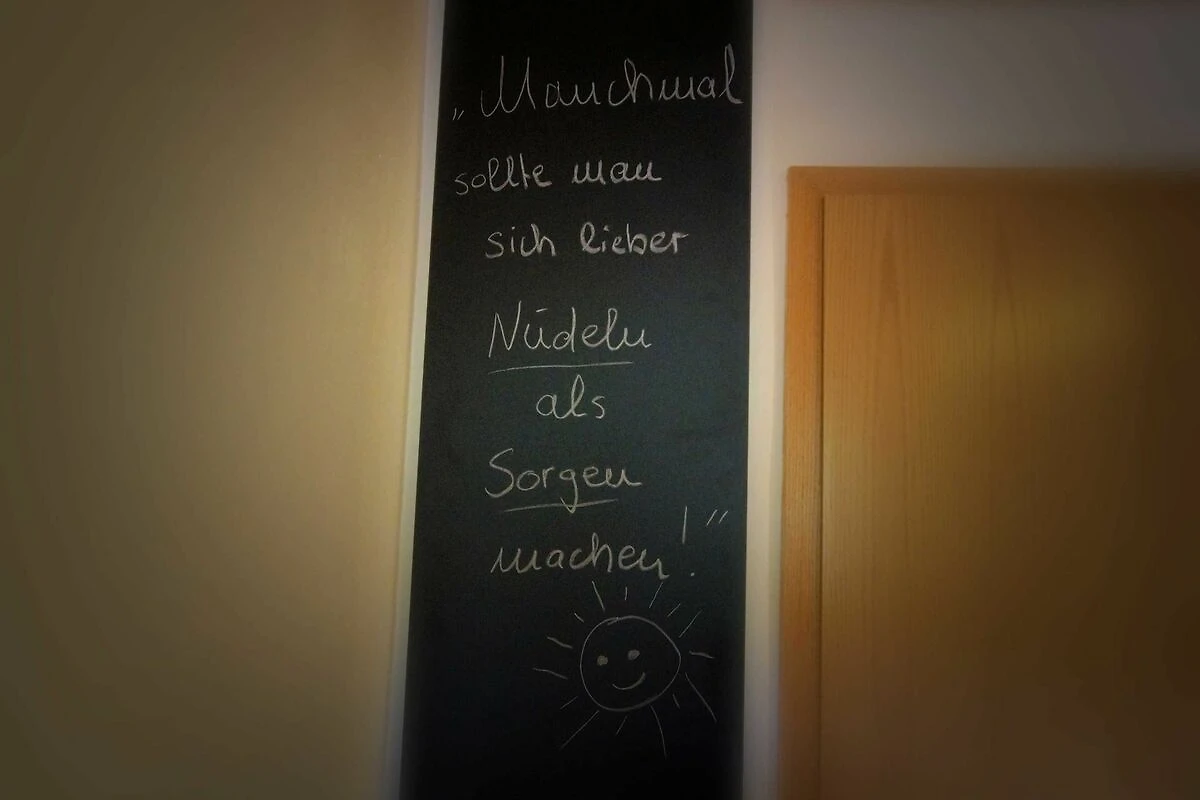 „Manchmal
sollte man
sich lieber
Nudeln
als
Sorgen
machen!"